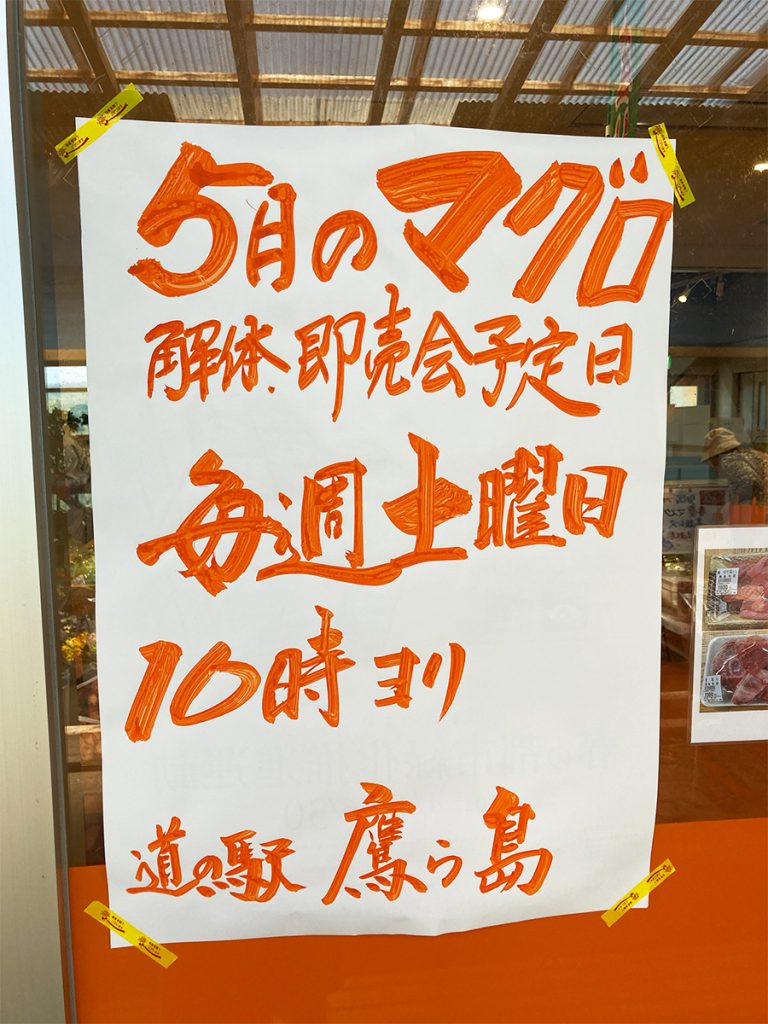 5月のマグロ
解体.即売会予定日
毎週土曜日
10時ヨリ
道の駅 鷹ら島